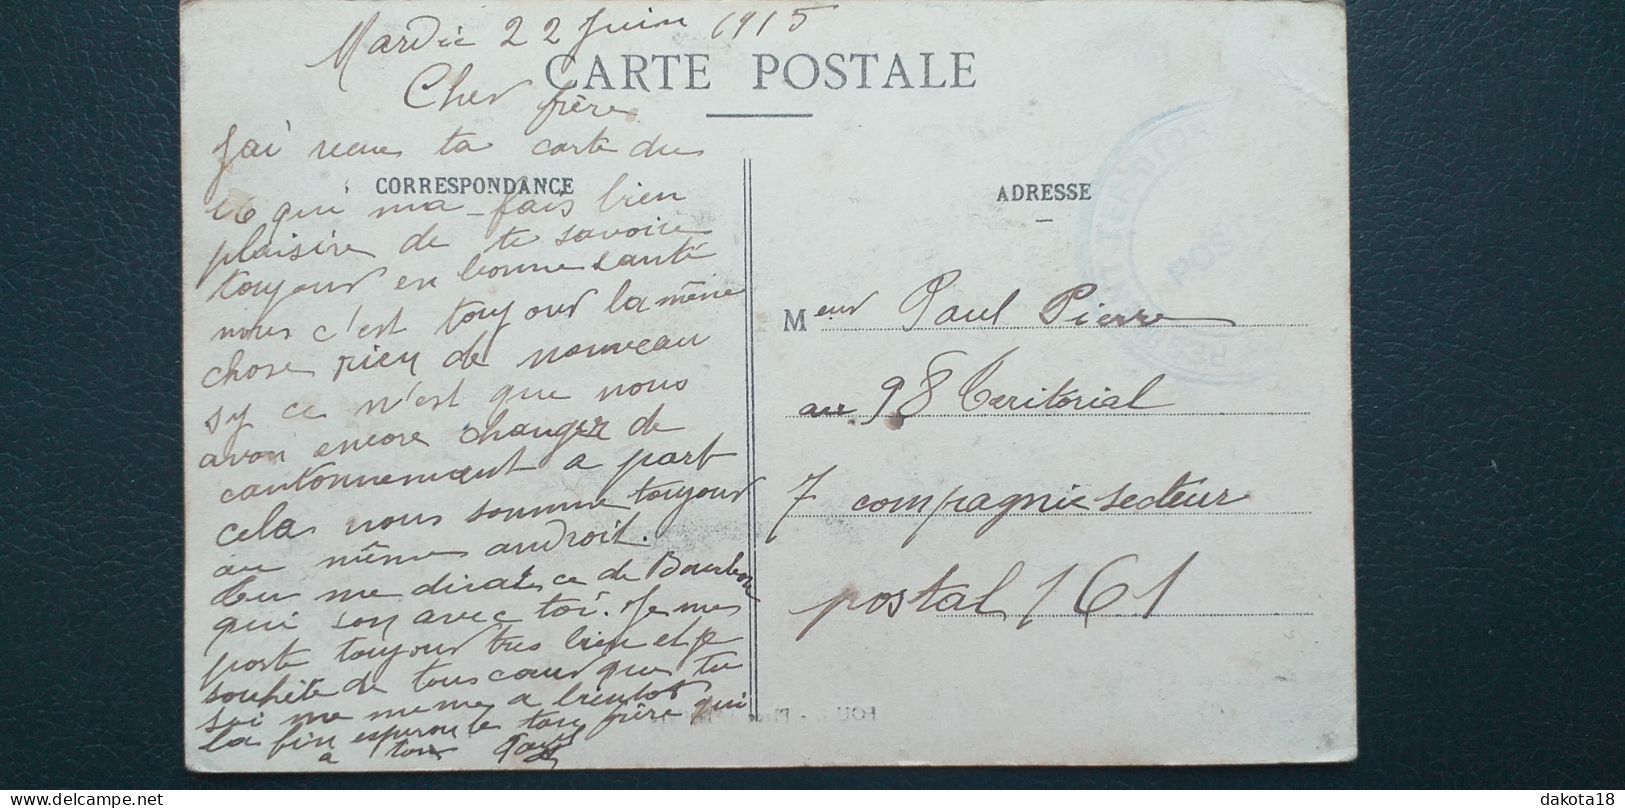 Mardie 22 Juin 1915
CARTE POSTALE
Cher frère
J'ai recue ta carte du
CORRESPONDANCE
16 qui ma fais bien
plaisire de te savoire
toujour en bonne santé
nous c'est toujour la même
chose rien de nouveau
sy ce n'est que nous
avon encore changer de
cantonnement a part
cela nous somme toujour
au même androit.
tu me diras ce de Bourbon
qui son avec toi. Je me
porte toujour tres bien et je
souhète de tous cœur que tu
soi me meme a bientot
la fin esperon le ton frère qui
a toi
ADRESSE
Meur Paul Pierre
au 98 teritorial
7 compagnie secteur
postal 161
POS
FOU
delcampe.net
dakota18